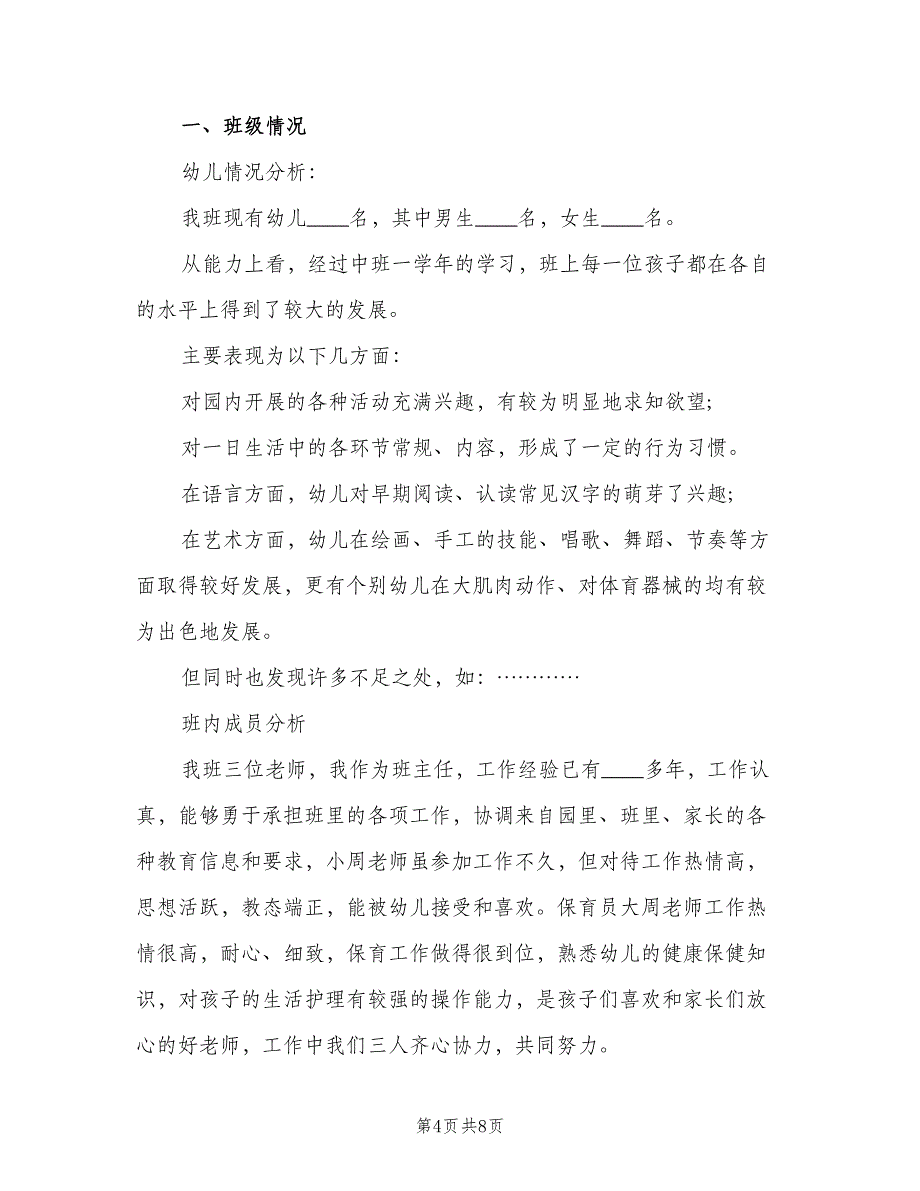 一、班级情况
幼儿情况分析：
我班现有幼儿____名，其中男生____名，女生____名。
从能力上看，经过中班一学年的学习，班上每一位孩子都在各自
的水平上得到了较大的发展。
主要表现为以下几方面：
对园内开展的各种活动充满兴趣，有较为明显地求知欲望;
对一日生活中的各环节常规、内容，形成了一定的行为习惯。
在语言方面，幼儿对早期阅读、认读常见汉字的萌芽了兴趣;
在艺术方面，幼儿在绘画、手工的技能、唱歌、舞蹈、节奏等方
面取得较好发展，更有个别幼儿在大肌肉动作、对体育器械的均有较
为出色地发展。
但同时也发现许多不足之处，如：…………
班内成员分析
我班三位老师，我作为班主任，工作经验已有____多年，工作认
真，能够勇于承担班里的各项工作，协调来自园里、班里、家长的各
种教育信息和要求，小周老师虽参加工作不久，但对待工作热情高，
思想活跃，教态端正，能被幼儿接受和喜欢。保育员大周老师工作热
情很高，耐心、细致，保育工作做得很到位，熟悉幼儿的健康保健知
识，对孩子的生活护理有较强的操作能力，是孩子们喜欢和家长们放
心的好老师，工作中我们三人齐心协力，共同努力。
第4页共8页